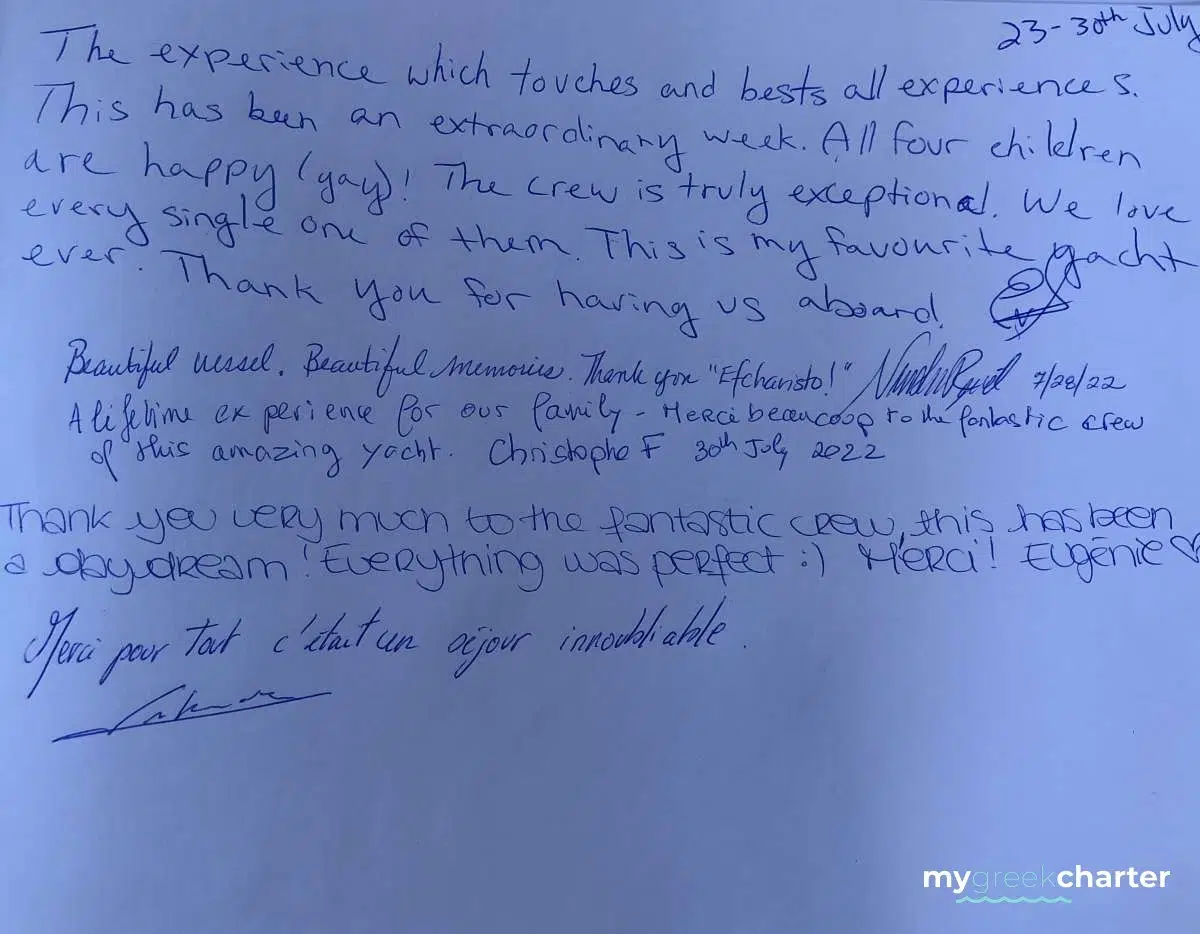 23-30th July
The experience which touches and bests all experiences.
This has been an extraordinary week. All four children
are happy (gay)! The crew is truly exceptional. We love
every single one of them. This is my favourite yacht
ever. Thank you for having us aboard.
Beautiful vessel. Beautiful memories. Thank you "Efcharisto!" 7/28/22
A lifetime experience for our family - Merci beaucoop to the fantastic crew
of this amazing yacht. Christophe F 30th July 2022
Thank you very much to the fantastic crew, this has been
a day dream! Everything was perfect :) Merci! Eugénie ♡
Merci pour tout c'était un séjour innoubliable.
mygreekcharter